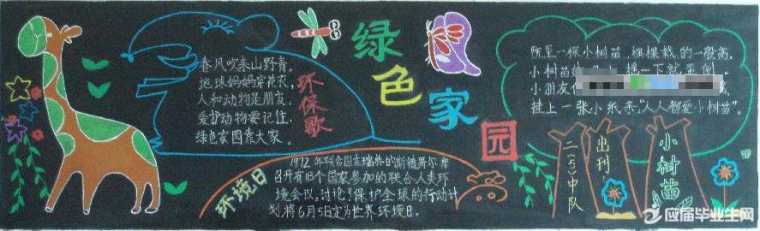 绿色家园
环保歌
春风吹来山野青,
地球妈妈穿花衣,
人和动物是朋友,
爱护动物要记住,
绿色家园靠大家。
环境日
1972年联合国在瑞典的斯德哥尔摩
召开有113个国家参加的联合人类环
境会议。讨论了保护全球的行动计
划,将6月5日定为世界环境日。
院里一棵小树苗,
小树苗
小朋友
挂上一张小纸条:“人人都爱小树苗”。
小树苗
出刊:
二(5)中队
应届毕业生网